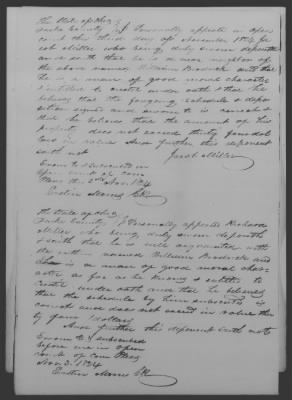 The State of Ohio }
Darke County } SS Personally appeared in open
court this third day of November 1824 Ja
cob Miller who being duly sworn deposeth
and saith that he is a near neighbor of
the above named William Brodrick and that
he is a man of good moral character
& entitled to credit under oath & that he
believes that the foregoing schedule & depo
sition signed and sworn to is correct
that he believes that the amount of his
property does not exceed thirty four dol
lars in value And further this deponent
saith not
Jacob Miller
Sworn to & subscribed in
open court of com
Pleas this 3rd Nov. 1824
Easton Morris Clk
The State of Ohio }
Darke County } SS Personally appeared Richard
Miller who being duly sworn deposeth
& saith that he is well acquainted with
the within named William Brodrick and
is a man of good moral char
acter as far as he knows & entitled to
credit under oath and that he believes
that the schedule by him subscribed is
correct and does not exceed in value thir
ty four Dollars
And further this deponent saith not
Sworn to & subscribed
before me in open
court of com Pleas
Nov. 3. 1824
Easton Morris Clk